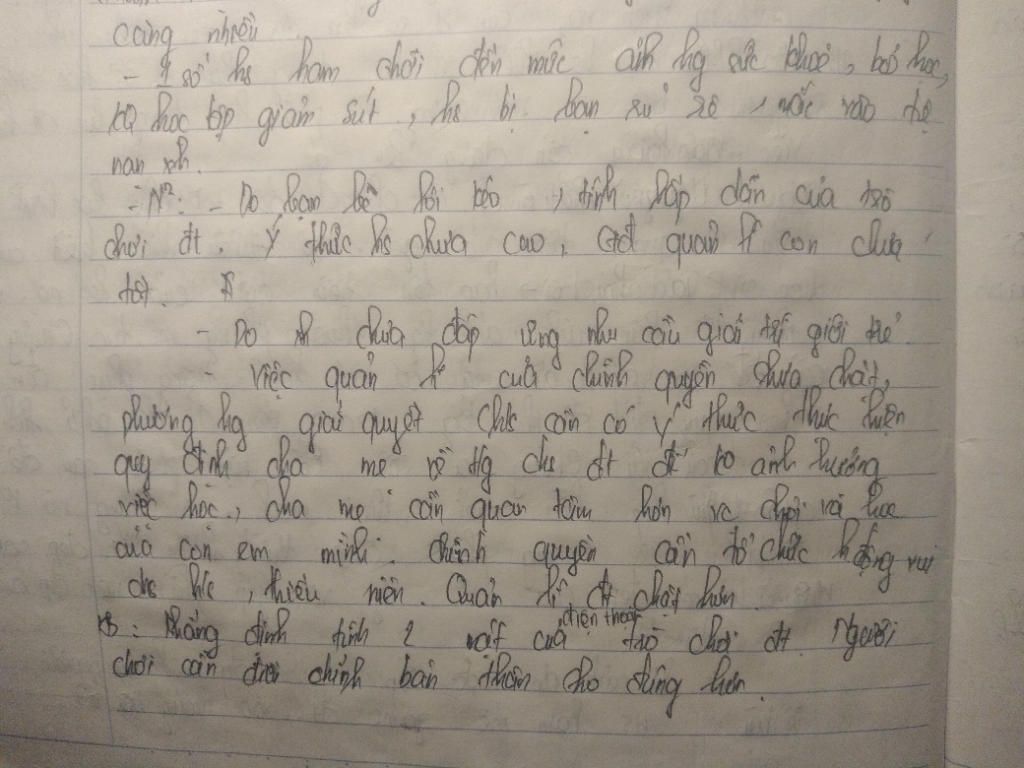 càng nhiều
- 1 số hs ham chơi đến mức ảnh hg sức khoẻ, bỏ học,
kq học tập giảm sút, hs bị bạn xấu rủ rê, mắc vào tệ
nạn xh.
- N²: - Do bạn bè lôi kéo, tính hấp dẫn của trò
chơi đt. Ý thức hs chưa cao, gđ quản lí con chưa
tốt.
- Do xh chưa đáp ứng nhu cầu giải trí giới trẻ
- việc quản lí của chính quyền chưa chặt,
phương hg giải quyết chs cần có ý thức thực hiện
quy định cha mẹ về tg chs đt để ko ảnh hưởng
việc học, cha mẹ cần quan tâm hơn vc chơi và học
của con em mình. chính quyền cần tổ chức động vui
chs hs, thiếu niên. Quản lí đt chặt hơn.
điện thoại
KB: Khẳng định tính 2 mặt của trò chơi đt. Người
chơi cần chính bản thân cho đúng hơn.